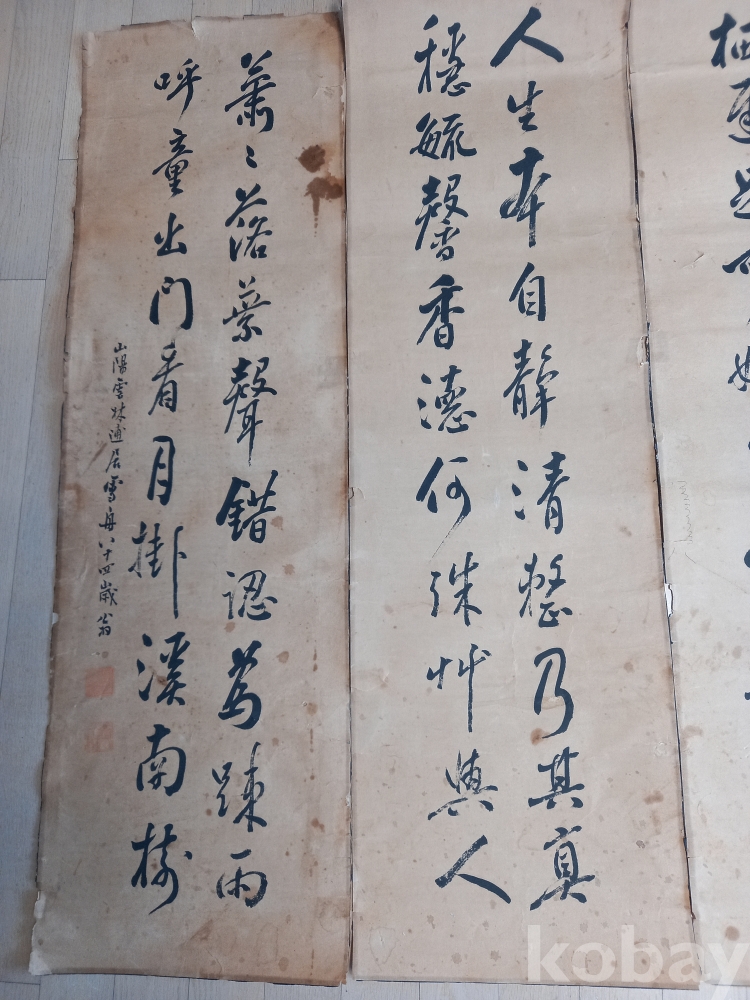 栖遲
人生本自靜清整乃其真
穩毓馨香德何殊艸與人
蕭〻落葉聲錯認爲踈雨
呼童出門看月掛溪南樹
山陽雲林逋居雪舟八十四歲翁
kobay